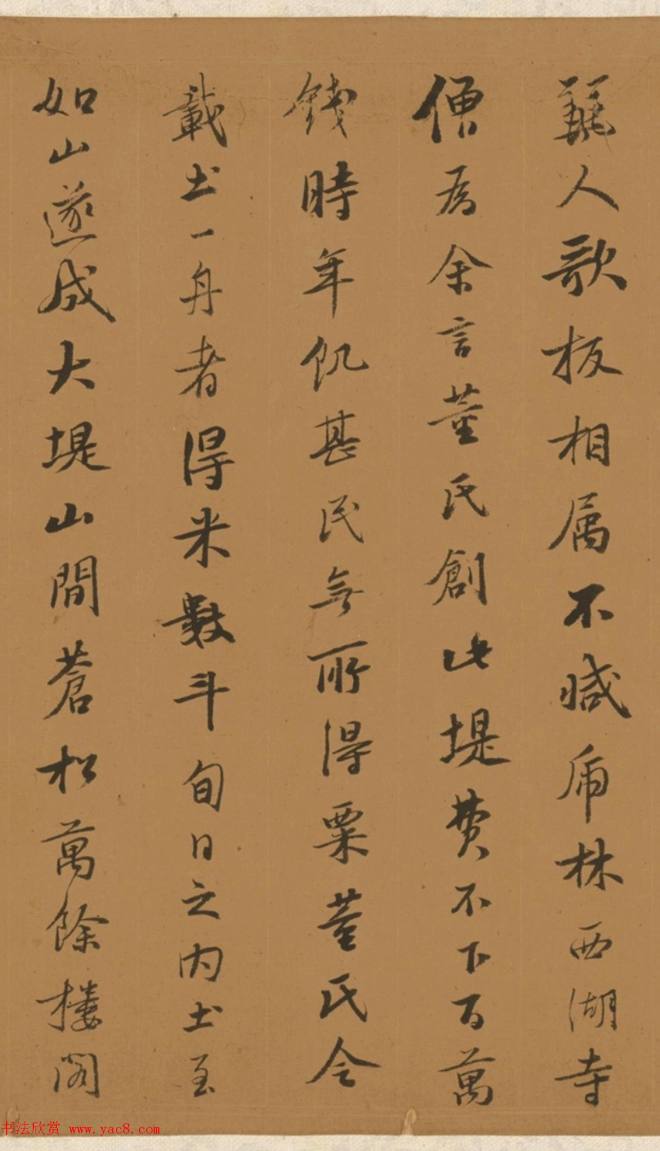 麗人歌板相属不減虎林西湖寺
僧为余言董氏創此堤費不下百萬
錢時年飢甚民無所得粟董氏令
載土一舟者得米數斗旬日之内土至
如山遂成大堤山間蒼松萬餘樓閣
书法欣赏 www.yac8.com